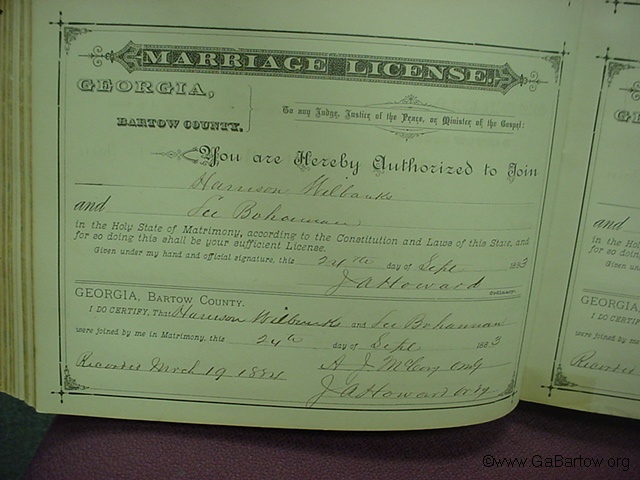 MARRIAGE LICENSE.
GEORGIA,
BARTOW COUNTY.
To any Judge, Justice of the Peace, or Minister of the Gospel:
You are Hereby Authorized to Join
Harrison Wilbanks
and Lee Bohannan
in the Holy State of Matrimony, according to the Constitution and Laws of this State, and
for so doing this shall be your sufficient License.
Given under my hand and official signature, this 24th day of Sept 1883
J A Howard Ordinary.
GEORGIA, BARTOW COUNTY.
I DO CERTIFY, That Harrison Wilbanks and Lee Bohannan
were joined by me in Matrimony, this 24th day of Sept 1883
Recorded March 19 1884 A J McCoy
J A Howard Ordy
and
in the Holy
for so doing
Given und
GEORGIA
I DO C
were joined by
Recorded
©www.GaBartow.org